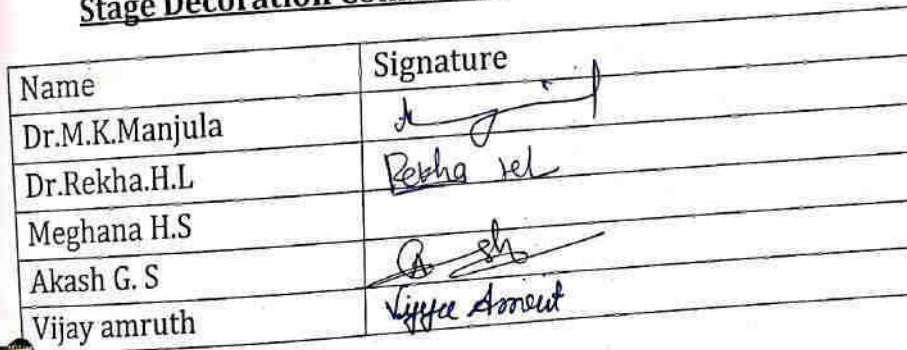 Stage Decoration
Name Signature
Dr.M.K.Manjula
Dr.Rekha.H.L Rekha
Meghana H.S
Akash G. S
Vijay amruth